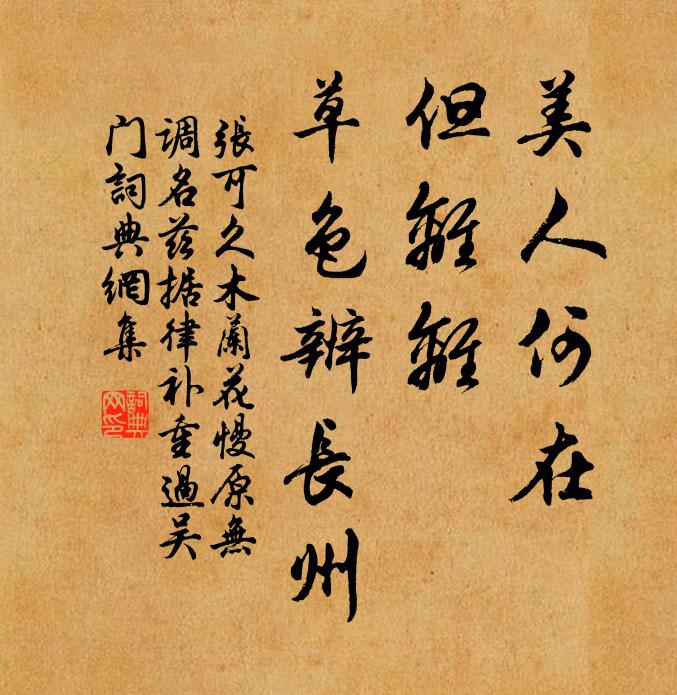 美人何在
但離離
草色辨長州
張可久木蘭花慢原無
调名茲据律补重過吴
门詞典網集
詞典
网印